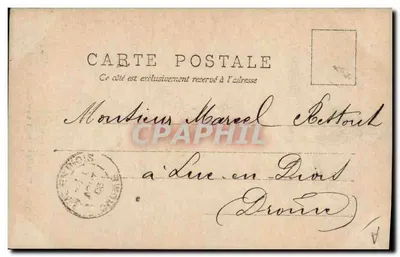 CARTE POSTALE
Ce côté est exclusivement reservé à l'adresse
Monsieur Marcel
CPAPHIL
à Luc-en-Diois
(Drôme)